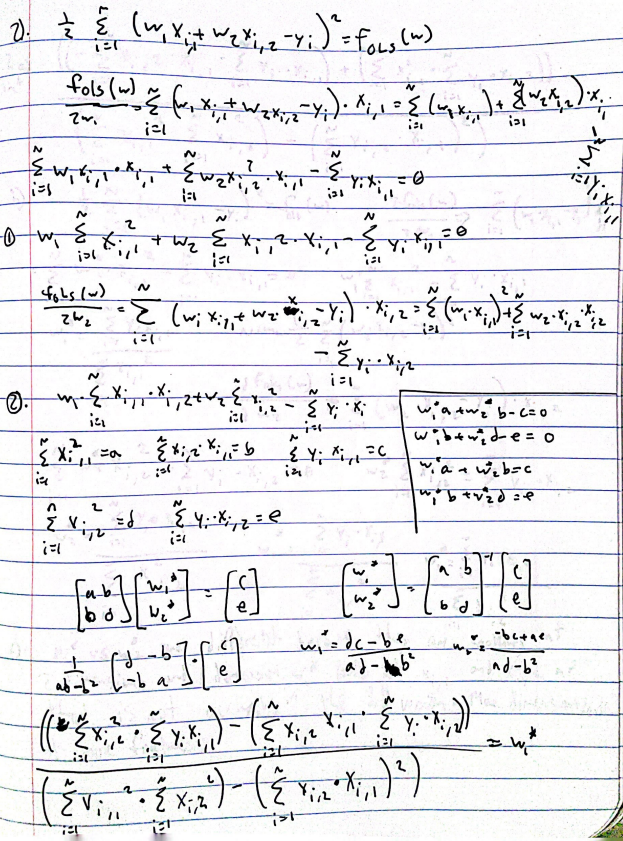 2). 1/2 Σ_{i=1}^{n} (w₁ x_{i,1} + w₂ x_{i,2} - y_i)² = f_OLS(w)
f_OLS(w)/2w₁ = Σ_{i=1}^{N} (w₁ x_{i,1} + w₂ x_{i,2} - y_i) · x_{i,1} = Σ_{i=1}^{N} (w₁ x_{i,1})² + Σ_{i=1}^{N} (w₂ x_{i,2}) · x_{i,1} - Σ_{i=1}^{N} y_i x_{i,1}
Σ_{i=1}^{N} w₁ x_{i,1} · x_{i,1} + Σ_{i=1}^{N} w₂ x_{i,2} · x_{i,1} - Σ_{i=1}^{N} y_i x_{i,1} = 0
① w₁ Σ_{i=1}^{N} x_{i,1}² + w₂ Σ_{i=1}^{N} x_{i,2} · x_{i,1} - Σ_{i=1}^{N} y_i x_{i,1} = 0
f_OLS(w)/2w₂ = Σ_{i=1}^{N} (w₁ x_{i,1} + w₂ · x_{i,2} - y_i) · x_{i,2} = Σ_{i=1}^{N} (w₁ · x_{i,1})² + Σ_{i=1}^{N} w₂ · x_{i,2} · x_{i,2}
- Σ_{i=1}^{N} y_i · x_{i,2}
②. w₁ · Σ_{i=1}^{N} x_{i,1} · x_{i,2} + w₂ Σ_{i=1}^{N} x_{i,2}² - Σ_{i=1}^{N} y_i · x_i
Σ_{i=1}^{N} x_{i,1}² = a Σ_{i=1}^{N} x_{i,2} · x_{i,1} = b Σ_{i=1}^{N} y_i x_{i,1} = c
Σ_{i=1}^{n} x_{i,2}² = d Σ_{i=1}^{N} y_i · x_{i,2} = e
w₁* a + w₂* b - c = 0
w₁* b + w₂* d - e = 0
w₁* a + w₂* b = c
w₁* b + w₂* d = e
[a b; b d] [w₁*; w₂*] = [c; e] [w₁*; w₂*] = [a b; b d]⁻¹ [c; e]
1/(ab - b²) [d -b; -b a] · [c; e] w₁* = (dc - be)/(ad - b²) w₂* = (-bc + ae)/(ad - b²)
((Σ_{i=1}^{N} x_{i,2}² · Σ_{i=1}^{N} y_i x_{i,1}) - (Σ_{i=1}^{N} x_{i,2} x_{i,1} · Σ_{i=1}^{N} y_i · x_{i,2})) = w₁*
(Σ_{i=1}^{N} x_{i,1}² · Σ_{i=1}^{N} x_{i,2}²) - (Σ_{i=1}^{N} x_{i,2} · x_{i,1})²)